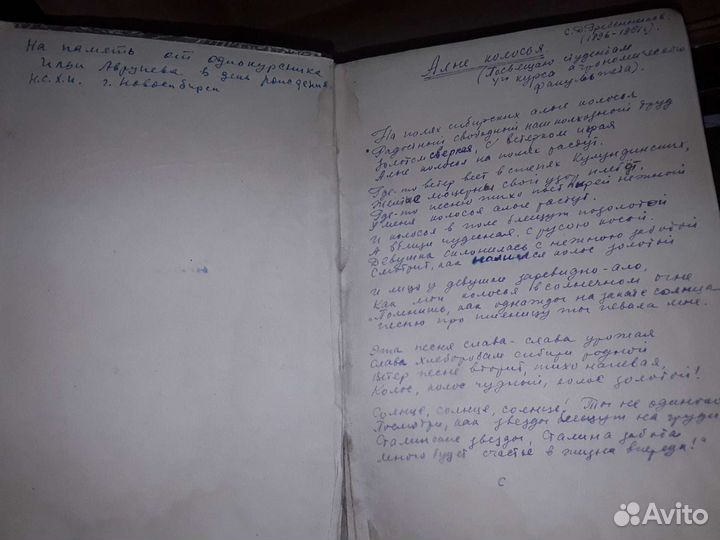 На память от однокурсника
Ильи Аврунева в день рождения
Н.С.Х.И. г. Новосибирск
С.Д. Гребенников.
(1936-1951г.)
Алые колосья
(Посвящаю студентам
курса агрономического
факультета).
На полях сибирских алые колосья
Радостный свободный наш колхозный труд
Золотом сверкая, с ветерком играя
Алые колосья на полях растут.
Где-то ветер веет в степях Кулундинских,
Желтые люцерны свой узор плетёт,
Где-то песню тихо поёт нежной
У меня колосья алые растут.
И колосья в поле блещут позолотой
А вблизи чудесная, с русою косой.
Девушка склонилась с нежною заботой
Смотрит, как налился колос золотой
И лицо у девушки заревидно-ало,
Как мои колосья в солнечном огне
Помнишь, как однажды на закате солнца
Песню про пшеницу ты певала мне.
Эта песня слава - слава урожая
Слава хлеборобам Сибири родной
Ветер песне вторит, тихо напевая,
Колос, колос чудный, колос золотой!
Солнце, солнце, солнце! Ты не одиноко
Посмотри, как звезды блещут на груди
Сталинские звезды, Сталина забота
Много будет счастья в жизни впереди!"
С
Avito